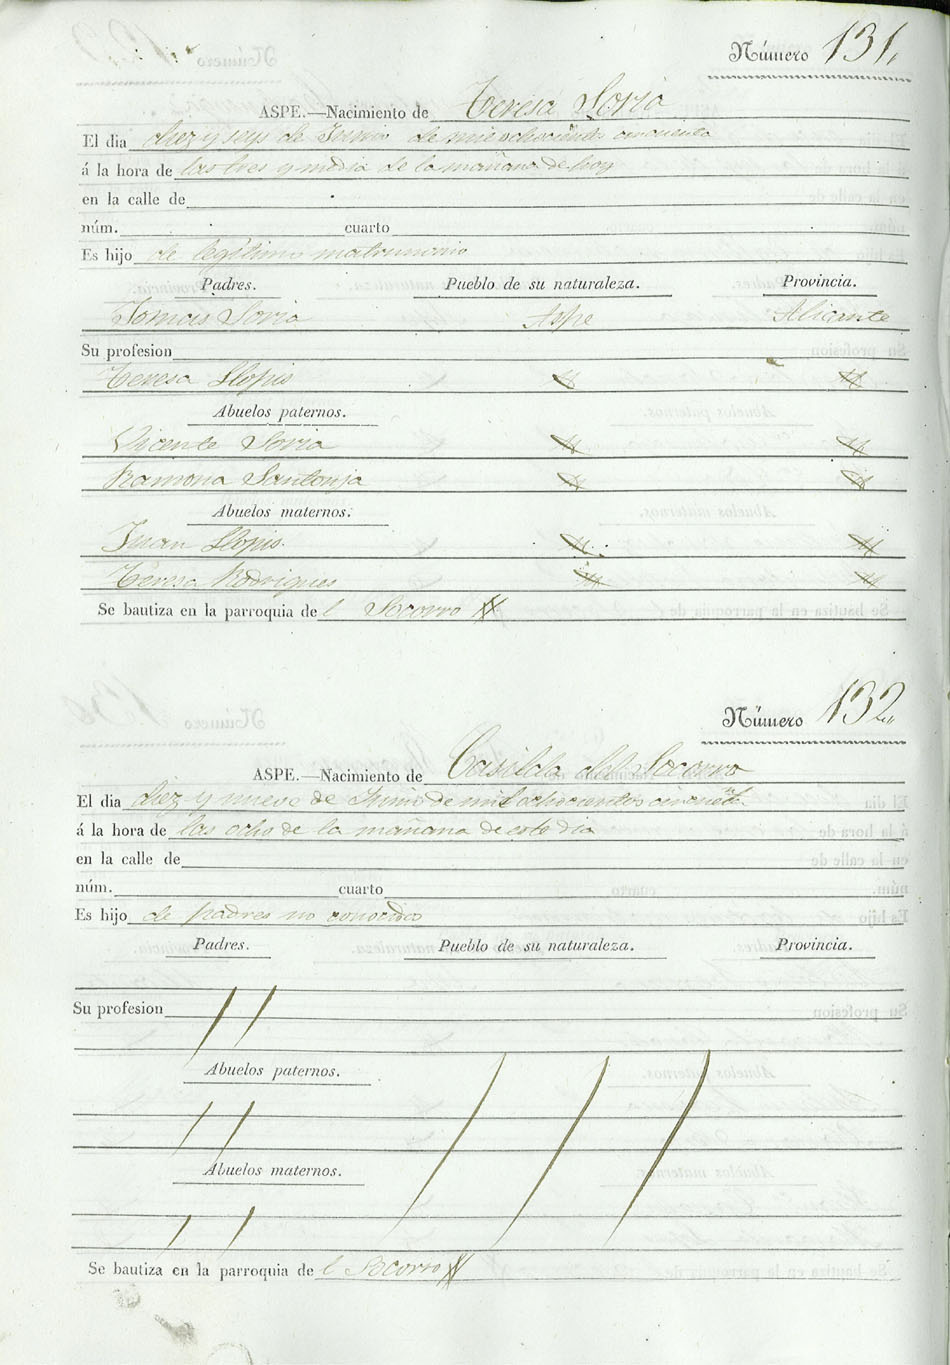 Número 131.
ASPE.—Nacimiento de Teresa Soria
El dia diez y seys de Junio de mil ochocientos cincuenta
á la hora de las tres y media de la mañana de hoy
en la calle de
núm. cuarto
Es hijo de legitimo matrimonio
Padres. Pueblo de su naturaleza. Provincia.
Tomas Soria Aspe Alicante
Su profesion
Teresa Llopis
Abuelos paternos.
Vicente Soria
Ramona Santonja
Abuelos maternos.
Juan Llopis.
Teresa Rodrigues
Se bautiza en la parroquia del Socorro
Número 132
ASPE.—Nacimiento de Casilda del Socorro
El dia diez y nueve de Junio de mil ochocientos cincuenta
á la hora de las ocho de la mañana de este dia
en la calle de
núm. cuarto
Es hijo de padres no conocidos
Padres. Pueblo de su naturaleza. Provincia.
Su profesion
Abuelos paternos.
Abuelos maternos.
Se bautiza en la parroquia del Socorro